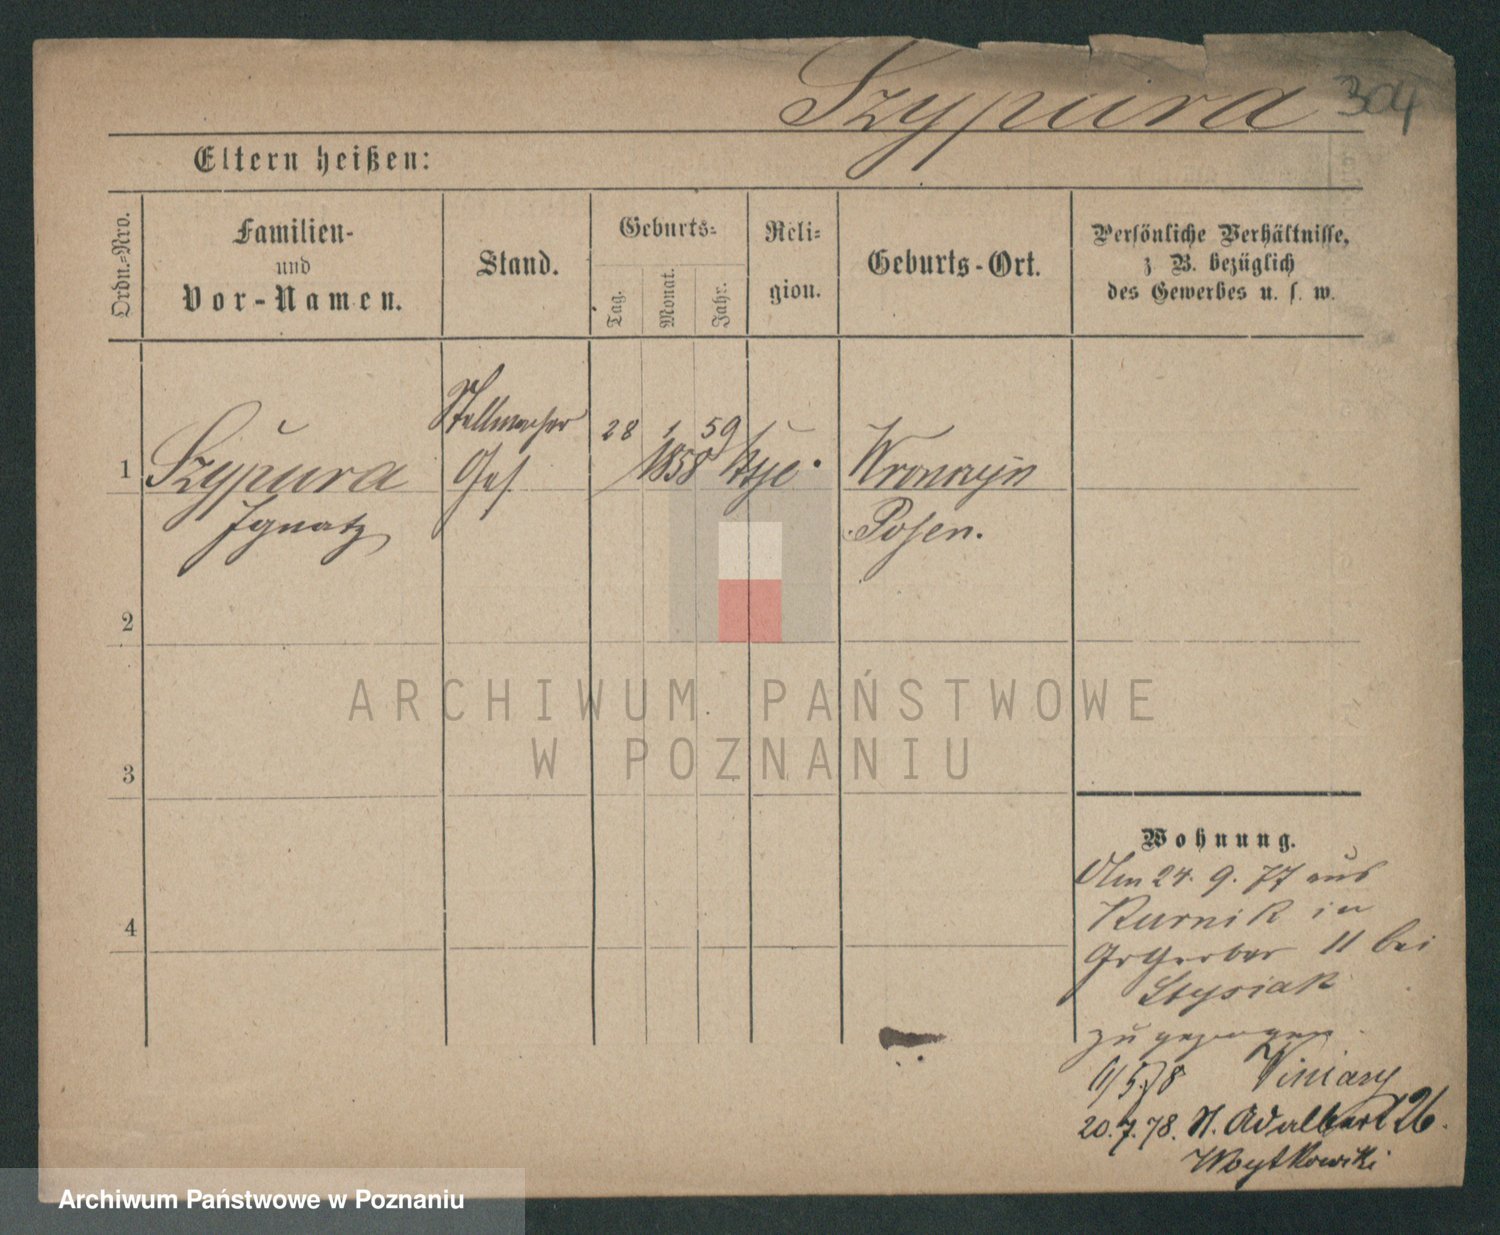 Szypura 304
Eltern heißen:
Ordn.-Nro.
Familien-
und
Vor-Namen.
Stand.
Geburts-
Tag.
Monat.
Jahr.
Reli-
gion.
Geburts-Ort.
Persönliche Verhältnisse,
z B. bezüglich
des Gewerbes u. s. w.
1
Szypura
Ignatz
Stellmacher
Ges.
28 1 59
1858
Wronczyn
Posen.
2
3
4
Wohnung.
Am 24. 9. 77 aus
Kurnik in
GrGerber 11 bei
Stysiak
zugezogen
5/78 Winiary
20.7.78. St. Adalbert 26.
Woytkowski
ARCHIWUM PAŃSTWOWE
W POZNANIU
Archiwum Państwowe w Poznaniu